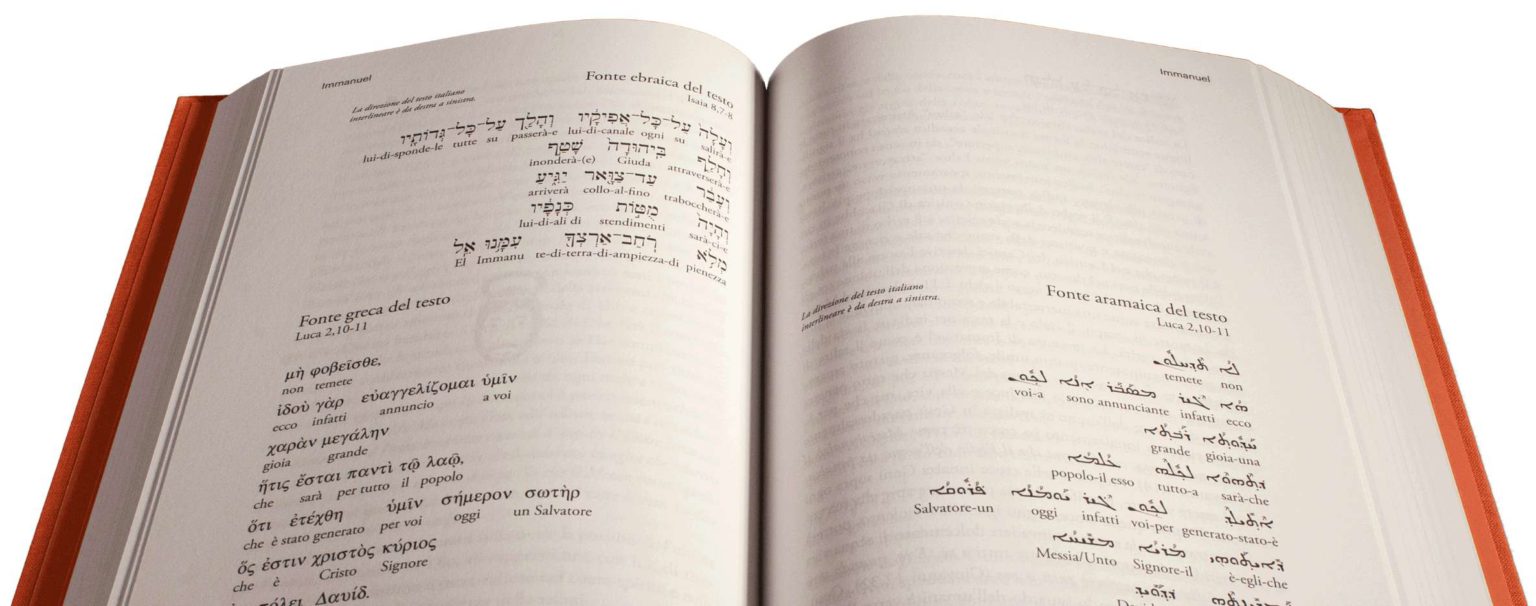 Immanuel
Fonte ebraica del testo
Isaia 8,7-8
La direzione del testo italiano
interlineare è da destra a sinistra.
וְעָלָה֙ עַל־כָּל־אֲפִיקָ֔יו וְהָלַ֖ךְ עַל־כָּל־גְּדוֹתָֽיו
lui-di-sponde-le tutte su passerà-e lui-di-canale ogni su salirà-e
וְחָלַ֤ף בִּֽיהוּדָה֙ שָׁטַ֣ף
inonderà-(e) Giuda attraverserà-e
וְעָבַ֔ר עַד־צַוָּ֖אר יַגִּ֑יעַ
arriverà collo-al-fino traboccherà-e
וְהָיָה֙ מֻטּ֣וֹת כְּנָפָ֔יו
lui-di-ali di stendimenti sarà-ci-e
מְלֹ֥א רֹֽחַב־אַרְצְךָ֖ עִמָּ֥נוּ אֵֽל
El Immanu te-di-terra-di-ampiezza-di pienezza
Fonte greca del testo
Luca 2,10-11
μὴ φοβεῖσθε,
non temete
ἰδοὺ γὰρ εὐαγγελίζομαι ὑμῖν
ecco infatti annuncio a voi
χαρὰν μεγάλην
gioia grande
ἥτις ἔσται παντὶ τῷ λαῷ,
che sarà per tutto il popolo
ὅτι ἐτέχθη ὑμῖν σήμερον σωτὴρ
che è stato generato per voi oggi un Salvatore
ὅς ἐστιν χριστὸς κύριος
che è Cristo Signore
πόλει Δαυίδ.
Immanuel
La direzione del testo italiano
interlineare è da destra a sinistra.
Fonte aramaica del testo
Luca 2,10-11
ܠܐ ܬܕܚܠܘܢ
temete non
ܗܐ ܓܝܪ ܡܣܒܪ ܐܢܐ ܠܟܘܢ
voi-a sono annunciante infatti ecco
ܚܕܘܬܐ ܪܒܬܐ
grande gioia-una
ܕܬܗܘܐ ܠܟܠܗ ܥܠܡܐ
popolo-il esso tutto-a sarà-che
ܐܬܝܠܕ ܠܟܘܢ ܓܝܪ ܝܘܡܢܐ ܦܪܘܩܐ
Salvatore-un oggi infatti voi-per generato-stato-è
ܕܐܝܬܘܗܝ ܡܪܝܐ ܡܫܝܚܐ
Messia/Unto Signore-il è-egli-che